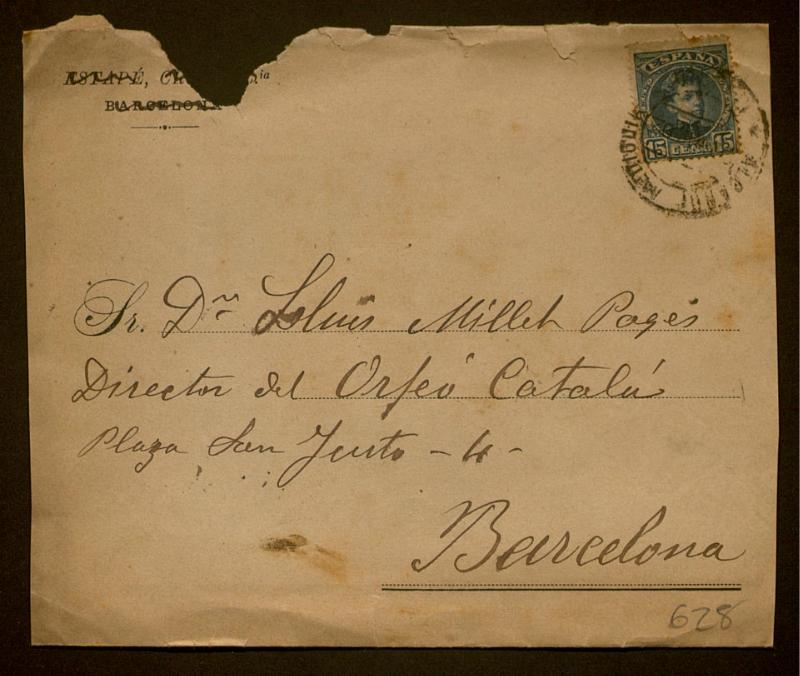 ASTAPÉ,
BARCELONA
ESPAÑA
15 CENT 15
Sr. Dn Lluis Millet Pagés
Director del Orfeó Catalá
Plaza San Justo - 4 -
Barcelona
628